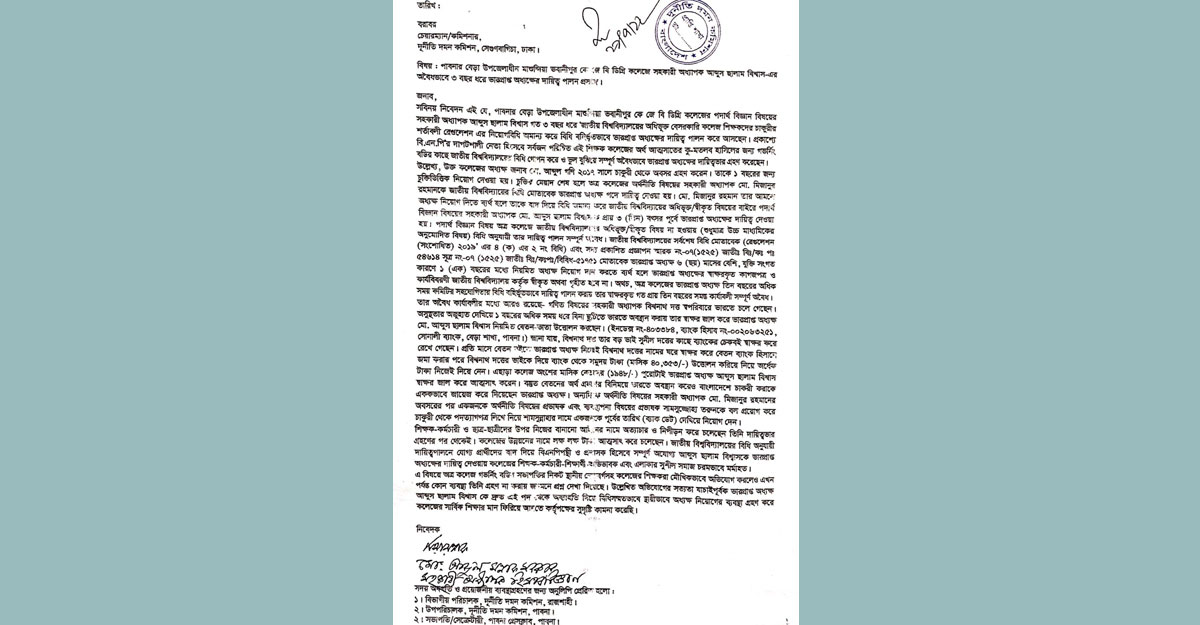 তারিখ :
বরাবর
চেয়ারম্যান/কমিশনার,
দূর্নীতি দমন কমিশন, সেগুণবাগিচা, ঢাকা।
বিষয় : পাবনার বেড়া উপজেলাধীন মাশুন্দিয়া ভবানীপুর কে জে বি ডিগ্রি কলেজে সহকারী অধ্যাপক আব্দুস ছালাম বিশ্বাস-এর
অবৈধভাবে ৩ বছর ধরে ভারপ্রাপ্ত অধ্যক্ষের দায়িত্ব পালন প্রসঙ্গে।
জনাব,
সবিনয় নিবেদন এই যে, পাবনার বেড়া উপজেলাধীন মাশুন্দিয়া ভবানীপুর কে জে বি ডিগ্রি কলেজের পদার্থ বিজ্ঞান বিষয়ের
সহকারী অধ্যাপক আব্দুস ছালাম বিশ্বাস গত ৩ বছর ধরে 'জাতীয় বিশ্ববিদ্যালয়ের অধিভুক্ত বেসরকারি কলেজ শিক্ষকদের চাকুরীর
শর্তাবলী রেগুলেশন এর নিয়োগবিধি অমান্য করে বিধি বর্হিভুতভাবে ভারপ্রাপ্ত অধ্যক্ষের দায়িত্ব পালন করে আসছেন। প্রকাশ্যে
বি.এন.পি'র দাপটশালী নেতা হিসেবে সর্বজন পরিচিত এই শিক্ষক কলেজের অর্থ আত্মসাতের কু-মতলব হাসিলের জন্য গভর্নিং
বডির কাছে জাতীয় বিশ্ববিদ্যালয়ের বিধি গোপন করে ও ভুল বুঝিয়ে সম্পূর্ণ অবৈধভাবে ভারপ্রাপ্ত অধ্যক্ষের দায়িত্বভার গ্রহণ করেছেন।
উল্লেখ্য, উক্ত কলেজের অধ্যক্ষ জনাব মো. আব্দুল গণি ২০১৭ সালে চাকুরী থেকে অবসর গ্রহণ করেন। তাকে ১ বছরের জন্য
চুক্তিভিত্তিক নিয়োগ দেওয়া হয়। চুক্তির মেয়াদ শেষ হলে অত্র কলেজের অর্থনীতি বিষয়ের সহকারী অধ্যাপক মো. মিজানুর
রহমানকে জাতীয় বিশ্ববিদ্যালয়ের বিধি মোতাবেক ভারপ্রাপ্ত অধ্যক্ষ পদে দায়িত্ব দেওয়া হয়। মো. মিজানুর রহমান তার আমলে
অধ্যক্ষ নিয়োগ দিতে ব্যর্থ হলে তাকে বাদ দিয়ে বিধি অমান্য করে জাতীয় বিশ্ববিদ্যালয়ের অধিভুক্ত/স্বীকৃত বিষয়ের বাইরে পদার্থ
বিজ্ঞান বিষয়ের সহকারী অধ্যাপক মো. আব্দুস ছালাম বিশ্বাসকে প্রায় ৩ (তিন) বৎসর পূর্বে ভারপ্রাপ্ত অধ্যক্ষের দায়িত্ব দেওয়া
হয়। পদার্থ বিজ্ঞান বিষয় অত্র কলেজে জাতীয় বিশ্ববিদ্যালয়ের অধিভুক্ত/স্বীকৃত বিষয় না হওয়ায় (শুধুমাত্র উচ্চ মাধ্যমিকের
অনুমোদিত বিষয়) বিধি অনুযায়ী তার দায়িত্ব পালন সম্পূর্ণ অবৈধ। জাতীয় বিশ্ববিদ্যালয়ের সর্বশেষ বিধি মোতাবেক (রেগুলেশন
(সংশোধিত) ২০১৯' এর ৪ (ক) এর ২ নং বিধি) এবং সদ্য প্রকাশিত প্রজ্ঞাপন স্মারক নং-০৭(১৫২৫) জাতীঃ বিঃ/কঃ পঃ
৫৪৬১৪ সূত্র নং-০৭ (১৫২৫) জাতীঃ বিঃ/কঃপঃ/বিবিধ-৫১৭৫১ মোতাবেক ভারপ্রাপ্ত অধ্যক্ষ ৬ (ছয়) মাসের বেশি, যুক্তি সংগত
কারণে ১ (এক) বছরের মধ্যে নিয়মিত অধ্যক্ষ নিয়োগ দান করতে ব্যর্থ হলে ভারপ্রাপ্ত অধ্যক্ষের স্বাক্ষরকৃত কাগজপত্র ও
কার্যবিবরণী জাতীয় বিশ্ববিদ্যালয় কর্তৃক স্বীকৃত অথবা গৃহীত হবে না। অথচ, অত্র কলেজের ভারপ্রাপ্ত অধ্যক্ষ তিন বছরের অধিক
সময় কমিটির সহযোগিতায় বিধি বহির্ভূতভাবে দায়িত্ব পালন করায় তার স্বাক্ষরকৃত গত প্রায় তিন বছরের সমস্ত কার্যাবলী সম্পূর্ণ অবৈধ।
তার অবৈধ কার্যাবলীর মধ্যে আরও রয়েছে- গণিত বিষয়ের সহকারী অধ্যাপক বিশ্বনাথ দত্ত স্বপরিবারে ভারতে চলে গেছেন।
অসুস্থতার অজুহাত দেখিয়ে ১ বছরের অধিক সময় ধরে বিনা ছুটিতে ভারতে অবস্থান করায় তার স্বাক্ষর জাল করে ভারপ্রাপ্ত অধ্যক্ষ
মো. আব্দুস ছালাম বিশ্বাস নিয়মিত বেতন-ভাতা উত্তোলন করছেন। (ইনডেক্স নং-৪০৩৩৮৪, ব্যাংক হিসাব নং-০০২০৬৩২৫১,
সোনালী ব্যাংক, বেড়া শাখা, পাবনা।) জানা যায়, বিশ্বনাথ দত্ত তার বড় ভাই সুনীল দত্তের কাছে ব্যাংকের চেকবই স্বাক্ষর করে
রেখে গেছেন। প্রতি মাসে বেতন বইতে ভারপ্রাপ্ত অধ্যক্ষ নিজেই বিশ্বনাথ দত্তের নামের ঘরে স্বাক্ষর করে বেতন ব্যাংক হিসাবে
জমা করার পরে বিশ্বনাথ দত্তের ভাইকে দিয়ে ব্যাংক থেকে সমুদয় টাকা (মাসিক ৪০,৩৫৩/-) উত্তোলন করিয়ে নিয়ে অর্ধেক
টাকা নিজেই নিয়ে নেন। এছাড়া কলেজ অংশের মাসিক বেতনের (১৯৪৮/-) পুরোটাই ভারপ্রাপ্ত অধ্যক্ষ আব্দুস ছালাম বিশ্বাস
স্বাক্ষর জাল করে আত্মসাৎ করেন। বস্তুত বেতনের অর্থ প্রদানের বিনিময়ে ভারতে অবস্থান করেও বাংলাদেশে চাকরী করাকে
এককভাবে জায়েজ করে নিয়েছেন ভারপ্রাপ্ত অধ্যক্ষ। অন্যদিকে অর্থনীতি বিষয়ের সহকারী অধ্যাপক মো. মিজানুর রহমানের
অবসরের পর একজনকে অর্থনীতি বিষয়ের প্রভাষক এবং ব্যবস্থাপনা বিষয়ের প্রভাষক সামসুজ্জোহা তরুনকে বল প্রয়োগ করে
চাকুরী থেকে পদত্যাগপত্র লিখে নিয়ে শামসুল্লাহার নামে একজনকে পূর্বের তারিখ (ব্যাক ডেট) দেখিয়ে নিয়োগ দেন।
শিক্ষক-কর্মচারী ও ছাত্র-ছাত্রীদের উপর নিজের বানানো আইনের নামে অত্যাচার ও নিপীড়ন করে চলেছেন তিনি দায়িত্বভার
গ্রহণের পর থেকেই। কলেজের উন্নয়নের নামে লক্ষ লক্ষ টাকা আত্মসাৎ করে চলেছেন। জাতীয় বিশ্ববিদ্যালয়ের বিধি অনুযায়ী
দায়িত্বপালনে যোগ্য প্রার্থীদের বাদ দিয়ে বিএনপিপন্থী ও প্রশাসক হিসেবে সম্পূর্ণ অযোগ্য আব্দুস ছালাম বিশ্বাসকে ভারপ্রাপ্ত
অধ্যক্ষের দায়িত্ব দেওয়ায় কলেজের শিক্ষক-কর্মচারী-শিক্ষার্থী-অভিভাবক এবং এলাকার সুশীল সমাজ চরমভাবে মর্মাহত।
এ বিষয়ে অত্র কলেজ গভর্নিং বডির সভাপতির নিকট স্থানীয় লোকসহ কলেজের শিক্ষকরা মৌখিকভাবে অভিযোগ করলেও এখন
পর্যন্ত কোন ব্যবস্থা তিনি গ্রহণ না করায় জনমনে প্রশ্ন দেখা দিয়েছে। উল্লেখিত অভিযোগের সত্যতা যাচাইপূর্বক ভারপ্রাপ্ত অধ্যক্ষ
আব্দুস ছালাম বিশ্বাস কে দ্রুত এই পদ থেকে অব্যাহতি দিয়ে বিধিসম্মতভাবে স্থায়ীভাবে অধ্যক্ষ নিয়োগের ব্যবস্থা গ্রহণ করে
কলেজের সার্বিক শিক্ষার মান ফিরিয়ে আনতে কর্তৃপক্ষের সুদৃষ্টি কামনা করেছি।
নিবেদক
সদয় অবগতি ও প্রয়োজনীয় ব্যবস্থাগ্রহণের জন্য অনুলিপি প্রেরিত হলো।
১। বিভাগীয় পরিচালক, দূর্নীতি দমন কমিশন, রাজশাহী।
২। উপপরিচালক, দূর্নীতি দমন কমিশন, পাবনা।
২: সভাপতি/সেক্রেটারী, পাবনা প্রেসক্লাব, পাবনা।